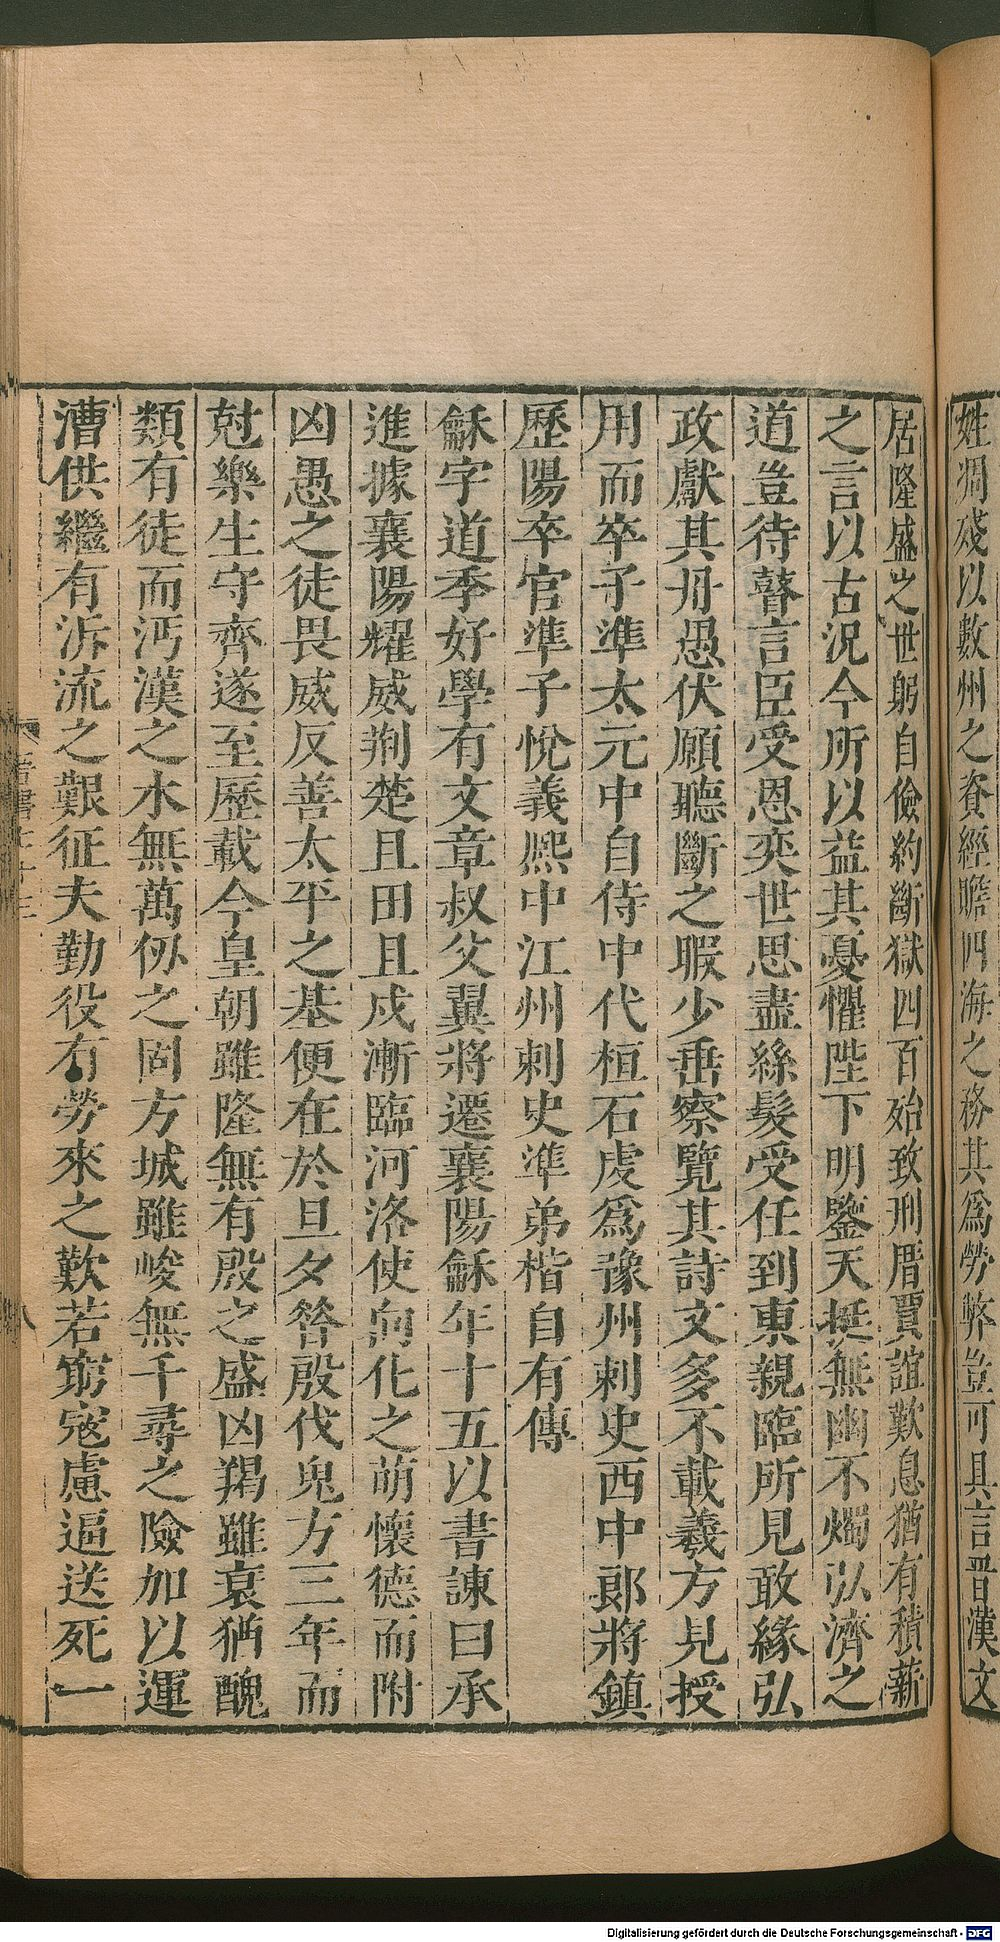 姓凋殘以數州之資經贍四海之務其爲勞弊豈可具言晉漢文
居隆盛之世躬自儉約斷獄四百殆致刑厝賈誼歎息猶有積薪
之言以古況今所以益其憂懼陛下明鑒天挺無幽不燭弘濟之
道豈待瞽言臣受恩奕世思盡絲髮受任到東親臨所見敢緣弘
政獻其丹愚伏願聽斷之暇少垂察覽其詩文多不載羲方見授
用而卒子準太元中自侍中代桓石虔爲豫州刺史西中郎將鎮
歷陽卒官準子悅義熙中江州刺史準弟楷自有傳
龢字道季好學有文章叔父翼將遷襄陽龢年十五以書諫曰承
進據襄陽耀威荆楚且田且戍漸臨河洛使向化之萌懷德而附
凶愚之徒畏威反善太平之基便在於旦夕昝殷伐鬼方三年而
尅樂生守齊遂至歷載今皇朝雖隆無有殷之盛凶羯雖衰猶醜
類有徒而沔漢之水無萬仞之固方城雖峻無千尋之險加以運
漕供繼有泝流之艱征夫勤役有勞來之歎若窮寇慮逼送死一
Digitalisierung gefördert durch die Deutsche Forschungsgemeinschaft - DFG